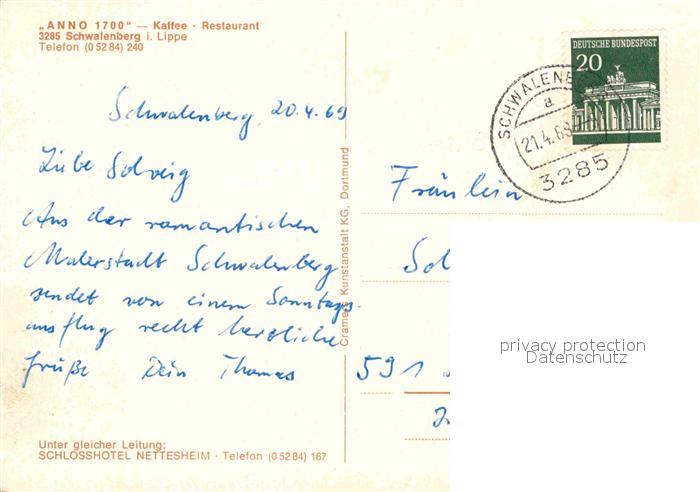 „ANNO 1700" — Kaffee · Restaurant
3285 Schwalenberg i. Lippe
Telefon (0 52 84) 240
Schwalenberg, 20.4.69
Liebe Solveig
Aus der romantischen
Malerstadt Schwalenberg
sendet von einem Sonntags-
ausflug recht herzliche
Grüße Dein Thomas
Unter gleicher Leitung:
SCHLOSSHOTEL NETTESHEIM · Telefon (0 52 84) 167
Cramers Kunstanstalt KG, Dortmund
DEUTSCHE BUNDESPOST
20
SCHWALENBE
a
21.4.69
3285
Fräulein
Sol
591
privacy protection
Datenschutz